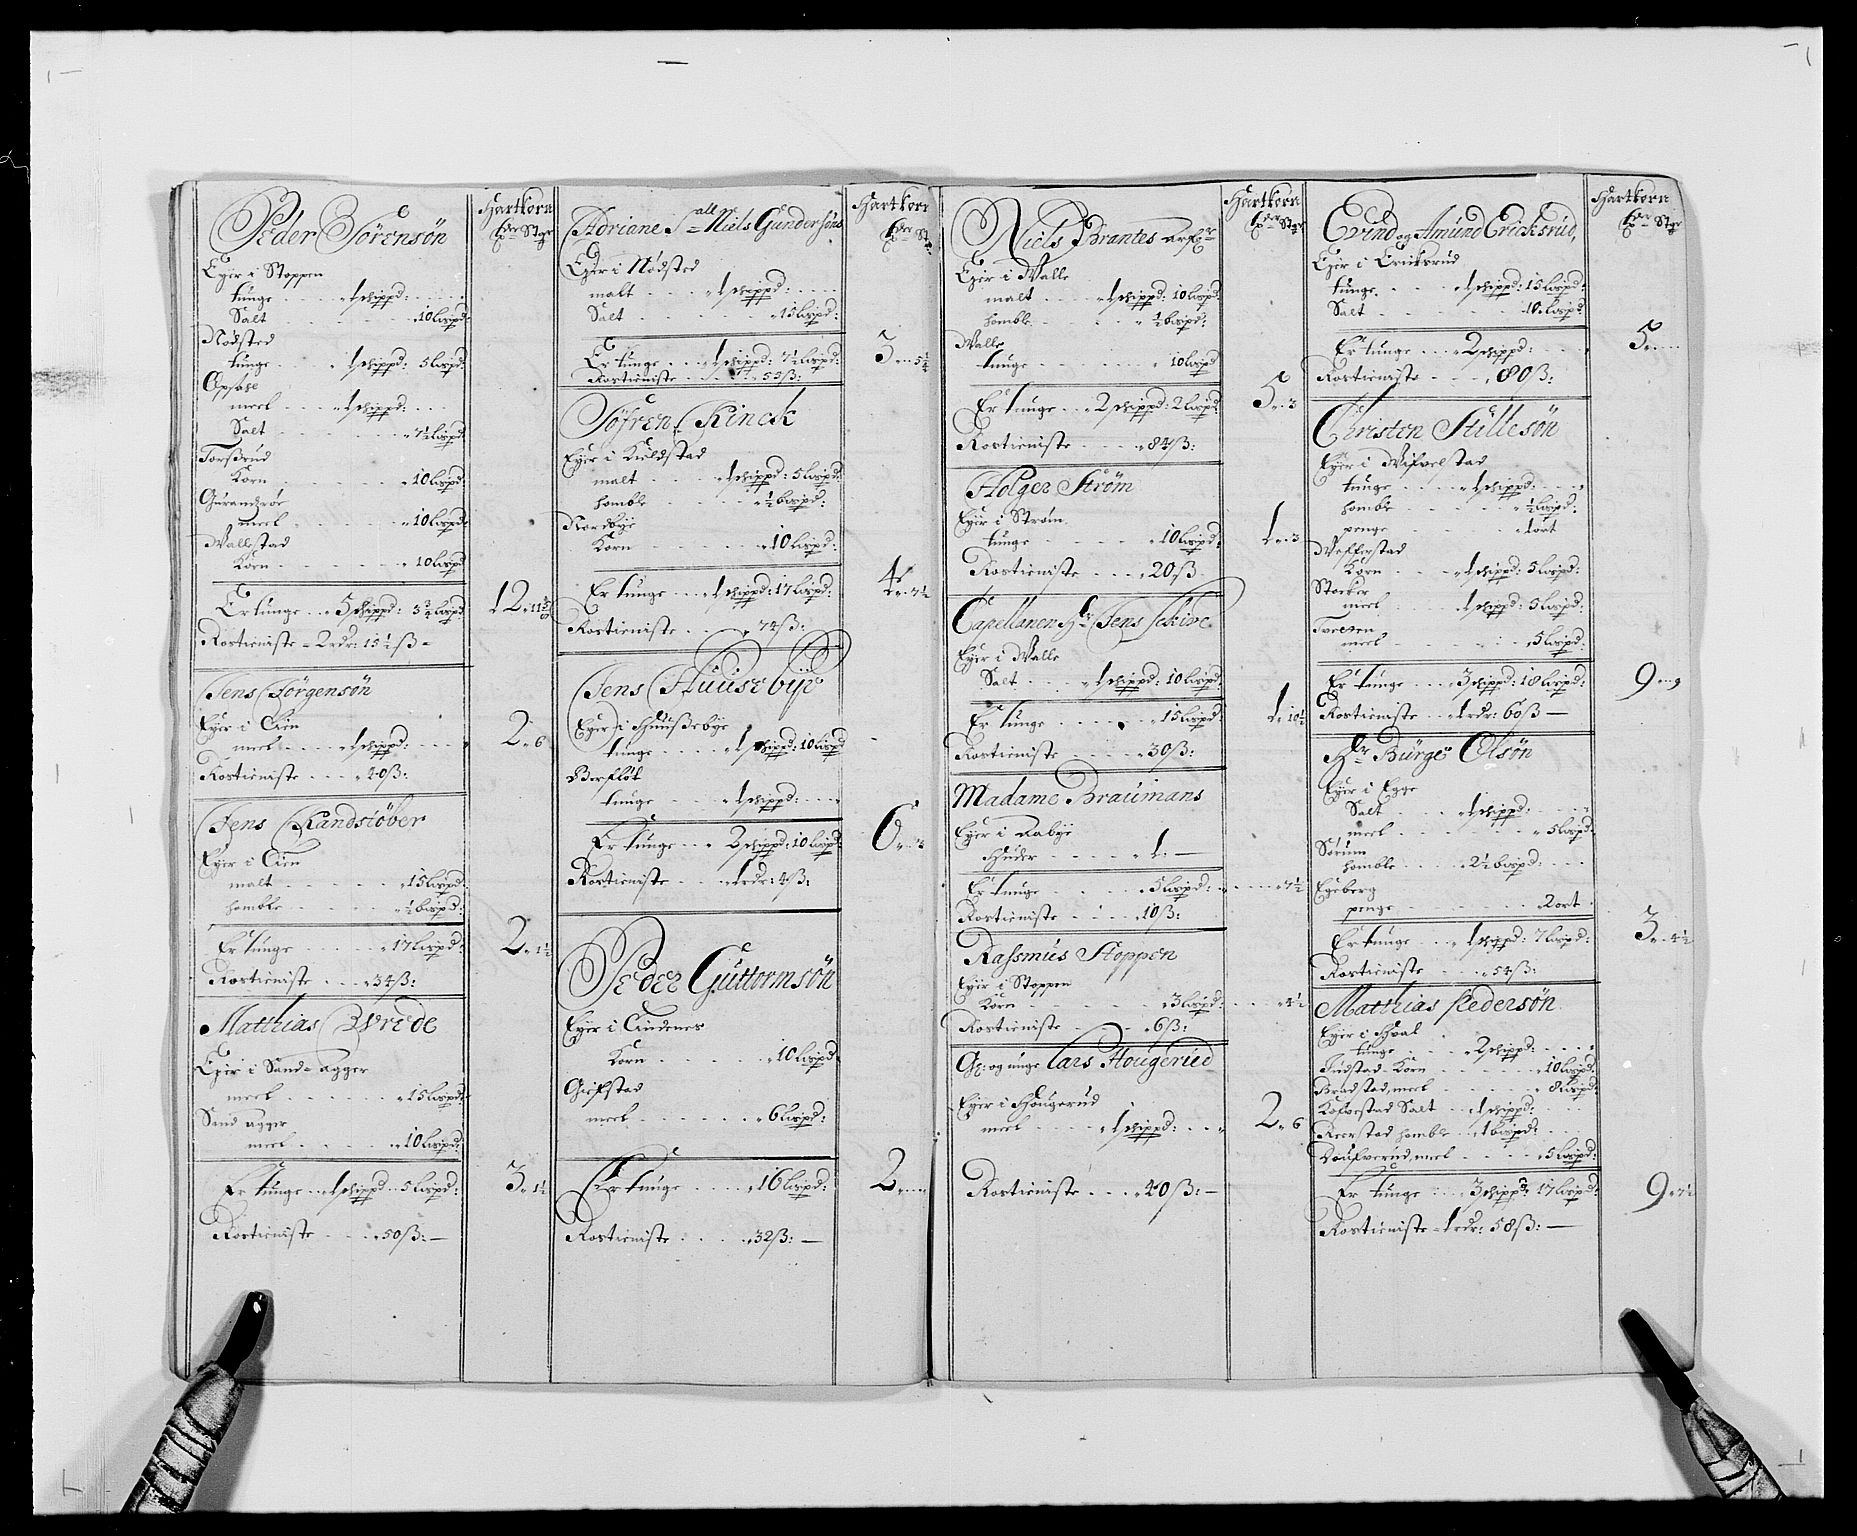 Hartkorn
Peder Sörensön
Eyer i Stoppen
tunge . . . . 1 schippd: . . . .
Salt . . . . . 10 lispd:
Nödsted
tunge . . . 1 schippd: 5 lispd:
Opsahl
meel . . . 1 schippd: . . .
Salt . . . . . 7½ lispd
Torßrud
Korn . . . . . 10 lispd
Gurandrör
meel . . . . . 10 lispd:
Wallstad
Korn . . . . . 10 lispd
Er tunge . . 5 schippd: 3¾ lispd
Rostieniste - 2 rdr: 15½ ß -
Jens Jörgensön
Eyer i Lien
meel . . . . 1 schippd: . . . . 2 " 6
Rostieniste . . . 40 ß:
Jens Randsiöber
Eyer i Lien
malt . . . . . 15 lispd:
homble . . . . . ½ bispd:
Er tunge . . . . . 17 lispd: 2 " 1½
Rostieniste . . . 34 ß:
Matthias Wrede
Eyer i Sand-agger
meel . . . . . 15 lispd:
Sand agger
meel . . . . . 10 lispd:
Er tunge . . 1 schippd 5 lispd: 3 " 1½
Rostieniste . . . 50 ß: —
Hartkorn
Adriane Sall Niels Gundersöns
Eyer i Nödsted
malt . . . . 1 schippd: . . . .
Salt . . . . . 15 lispd:
Er tunge . . . 1 schippd: 7½ lispd: 3 " 5¼
Rostieniste . . . . 55 ß:
Söfren Rinck
Eyer i Kuldstad
malt . . . . 1 schippd: 5 lispd:
homble . . . . . ½ bispd:
Nordbye
Korn . . . . . 10 lispd:
Er tunge . . . 1 schippd: 17 lispd: 4 " 7½
Rostieniste . . . 74 ß:
Jens Huusebye
Eyer i Huußebye
tunge . . . . 1 schippd: 10 lispd
Berflöt
tunge . . . . 1 schippd: . . .
Er tunge . . 2 schippd: 10 lispd:
Rostieniste . . . 1 rdr: 4 ß:
Peder Guttormsön
Eyer i Lindenes
Korn . . . . . 10 lispd
Giefstad
meel . . . . . 6 lispd:
Er tunge . . . . 16 lispd: 2 " "
Rostieniste . . . . 32 ß: —
Hartkorn
Niels Brantes arf:
Eyer i Walle
malt . . . . 1 schippd: 10 lispd
homble . . . . . ½ bispd:
Walle
tunge . . . . . 10 lispd
Er tunge . . 2 schippd: 2 lispd: 5 " 3
Rostieniste . . . . 84 ß:
Holger Ström
Eyer i Ström
tunge . . . . . 10 lispd: 1 " 3
Rostieniste . . . 20 ß
Capellanen Hr Jens Schive
Eyer i Walle
Salt . . . . 1 schippd: 10 lispd
Er tunge . . . . . 15 lispd: 1 " 10½
Rostieniste . . . . 30 ß:
Madame Braumans
Eyer i Rabye
Huder . . . . 1: —
Er tunge . . . . . 5 lispd: . . . . 7½
Rostieniste . . . . 10 ß:
Rassmus Stoppen
Eyer i Stoppen
Korn . . . . . 3 lispd: . . . . 4½
Rostieniste . . . . 6 ß:
Gl: og unge Lars Hougerud
Eyer i Hougerud
meel . . . . 1 schippd: . . . 2 " 6
Rostieniste . . . 40 ß: —
Hartkorn
Evind og Amund Ericksrud,
Eyer i Ericksrud
tunge . . . . 1 schippd: 15 lispd:
Salt . . . . . 10 lispd
Er tunge . . . 2 schippd: . . . 5 "
Rostieniste . . . . 80 ß:
Christen Stillesön
Eyer i Wifvelstad
tunge . . . . 1 schippd: . . .
homble . . . . . ½ bispd:
penge . . . . . 1 ort
Wefferstad
Korn . . . . 1 schippd: 5 lispd:
Stocker
meel . . . . 1 schippd: 5 lispd:
Tveten
meel . . . . . 5 lispd:
Er tunge . . . 3 schippd: 18 lispd: 9 " 9
Rostieniste . . 1 rdr: 60 ß —
Hr Börge Olsön
Eyer i Egge
Salt . . . . 1 schippd: . . .
meel . . . . . 5 lispd
Sörum
homble . . . . 2½ bispd: . . .
Egeberg
penge . . . . . 2 ort
Er tunge . . . 1 schippd: 7 lispd: 3 " 4½
Rostieniste . . . . 54 ß:
Matthias Pedersön
Eyer i Hval
tunge . . . . 2 schippd: . . .
Indstad Korn . . . . 10 lispd:
Bradstad, meel . . . . 8 lispd:
Kolvestad Salt . . 1 schippd:
Reerstad homble . . 1 bispd: . . .
meel . . . . 5 lispd:
Er tunge . . . 3 schippd: 17 lispd: 9 " 7½
Rostieniste - 1 rdr: 58 ß: —